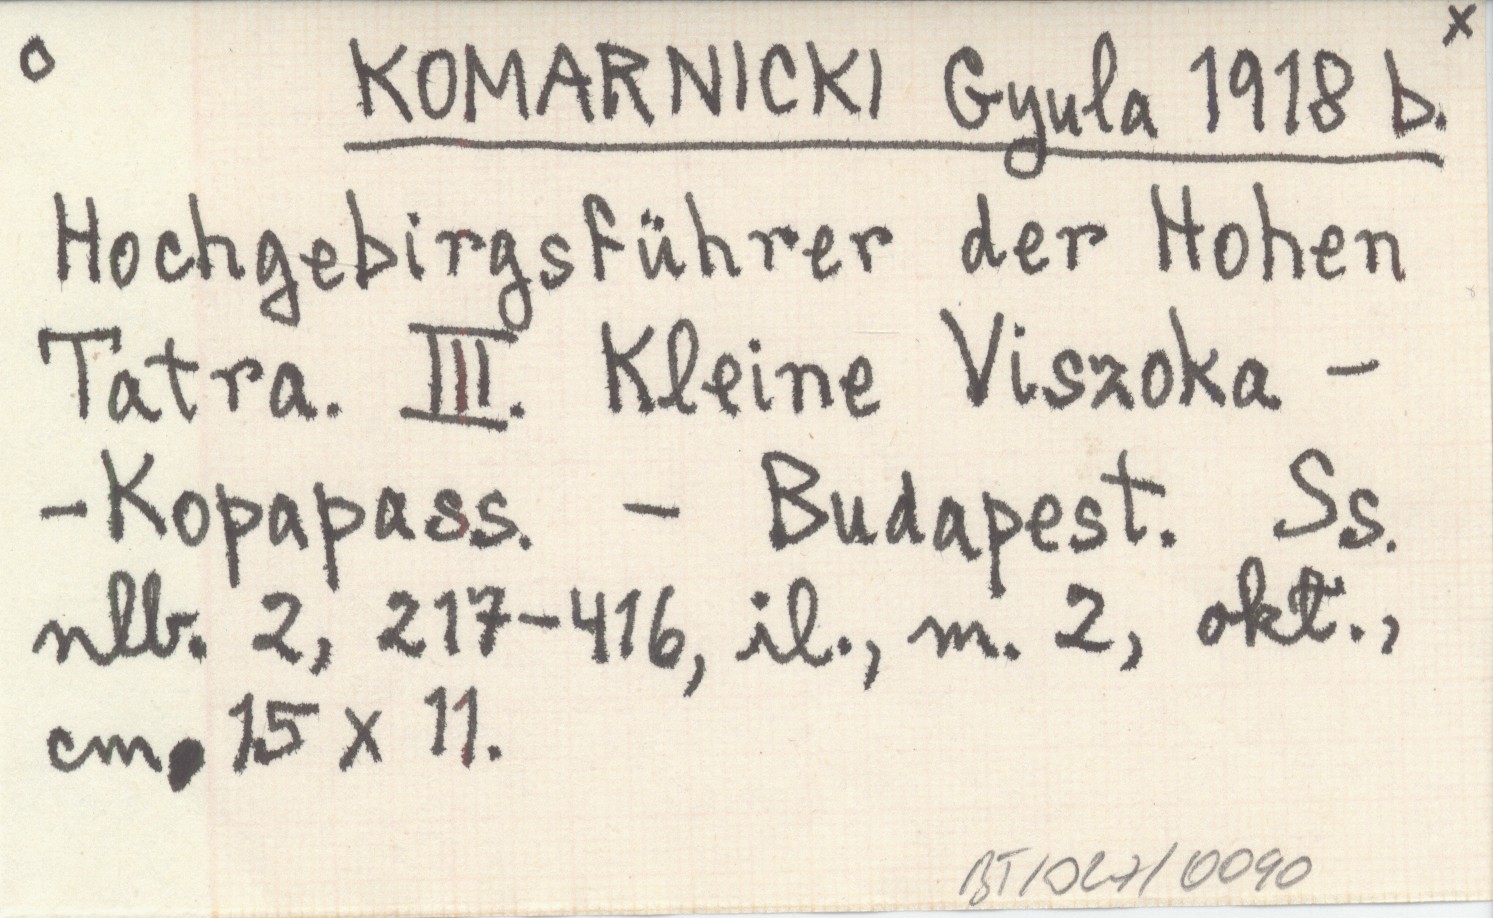 o KOMARNICKI Gyula 1918 b. x
Hochgebirgsführer der Hohen
Tatra. III. Kleine Viszoka -
-Kopapass. - Budapest. Ss.
nlb. 2, 217-416, il., m. 2, okt.,
cm. 15 x 11.
BT/027/0090